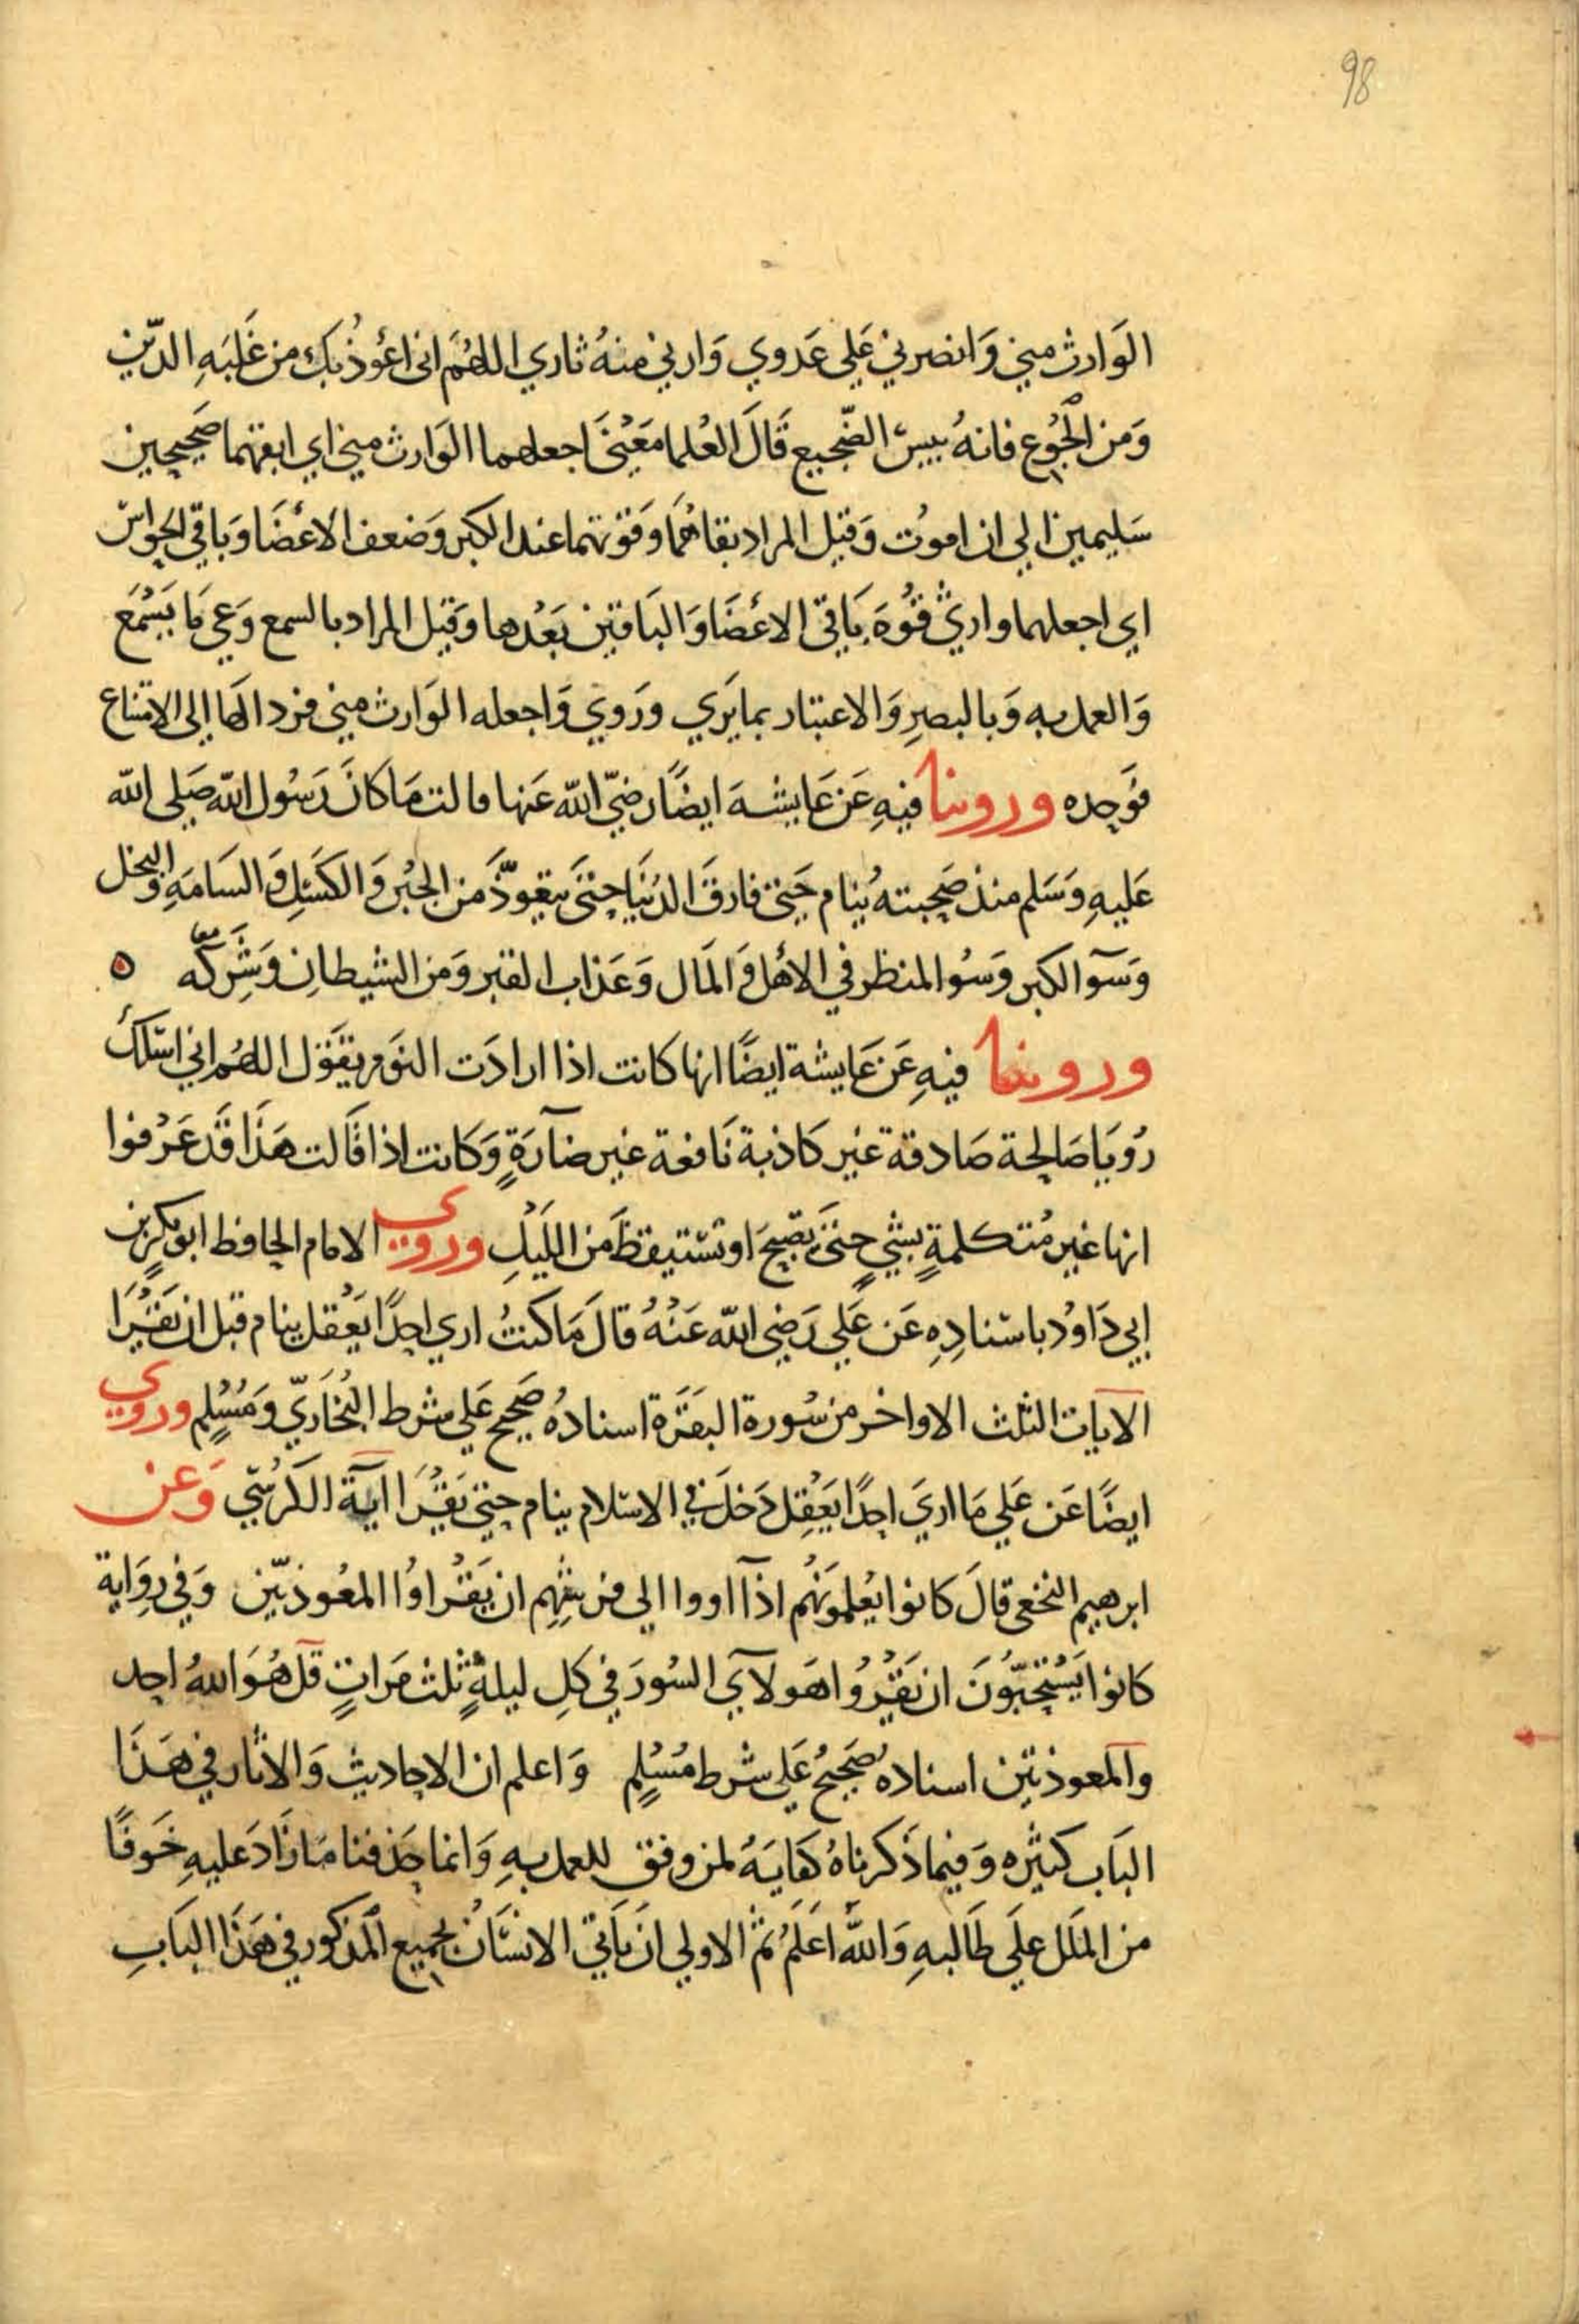 98
الوَارث مني وَانصرني عَلي عَدوي وَارني منهُ ثاري اللهُم اني اعُوذ بك من غَلبَهِ الدّين
وَمن الجُوع فانهُ بيسَ الضّجيع قَالَ العُلما مَعْنيَ اجعلهما الوَارث مني اي ابقهما صَحيحين
سَليمين الي ان اموُت وَقيل المراد بقاهُمَا وَقوتهما عند الكبر وَضعف الاعْضَا وَباقي الحَواسّ
اي اجعلهما وارثي قُوةَ بَاقي الاعْضَا وَالبَاقين بَعْدها وَقيل المراد بالسمع وَعي مَا يَسْمَع
وَالعمل به وَبالبصرِ وَالاعتبار بما يَري وَرَوي وَاجعله الوَارث مني فرد الهَا الي الامتناع
فوَحده وروينا فيهِ عَن عَايشهَ ايضًا رَضيّ الله عَنها قالت مَا كانَ رَسُول الله صَلي الله
عَليهِ وَسَلم منذ صَحبته ينُام حَتي فارقَ الدُنيَا حتيَ يتعوّذَ من الجبْن وَالكسَلِ وَالسَامَهِ وَالبخل
وَسَوآ الكبر وَسُوا المنظر في الاهْل وَالمَال وَعَذاب القبر وَمن الشيطانِ وَشَرَكهّ ٥
وروينا فيهِ عَن عَايشة ايضًا انها كانت اذا ارادَت النوَم تقَوُل اللهُم اني اسَلك
رُويَا صَالحة صَادقة غير كَاذبة نَافعة غير ضآرَةٍ وَكانت اذا قَالت هَذَا قَد عَرْفوا
انها غير مُتكلمةٍ بشيٍ حتيَ تصْبحَ او تسْتيقظَ من الليْلِ وروي الامام الحافظ ابو بكرٍ بن
ابي دَاوُد باسْنادِهِ عَن عَلي رَضي الله عَنْهُ قالَ مَا كنتُ اري احدًا يَعْقل ينام قبل ان يَقْرَا
الايات الثلث الاواخر من سُورة البقَرَة اسنادهُ صَحيح عَلي شرط البُخَاريّ وَمُسْلمٍ وروي
ايضًا عَن عَلي مَا اريَ احدًا يَعْقِل دَخلَ في الاسْلام ينام حتي يَقْرَا ايَة الكَرُسّي وَعن
ابرهيم النخعي قالَ كانوا يُعْلموَنَهُم اذآ اووا الي فرشهِم ان يَقْرَاوُا المعُوذتيّن وَفي رِوَاية
كانوا يَسْتحبّوُنَ ان يَقْرُوا هَولآي السُورَ في كلِ ليلةٍ ثلث مَراتٍ قل هُوَ اللهُ احد
والمعوذتين اسنادهُ صَحيحُ عَلي شرط مُسْلمٍ وَاعلم ان الاحاديث وَالاثار في هَذَا
البَاب كثيره وَفيما ذَكرناهُ كفايَهُ لمن وفق للعمل بهِ وَانما حَذفنا مَا زَادَ عليهِ خَوفًا
من الملَل علَي طَالبهِ وَاللهُ اعَلَمُ ثم الاولي ان يَاتيَ الانسَانُ بجميع المذكور في هَذَا البَابِ